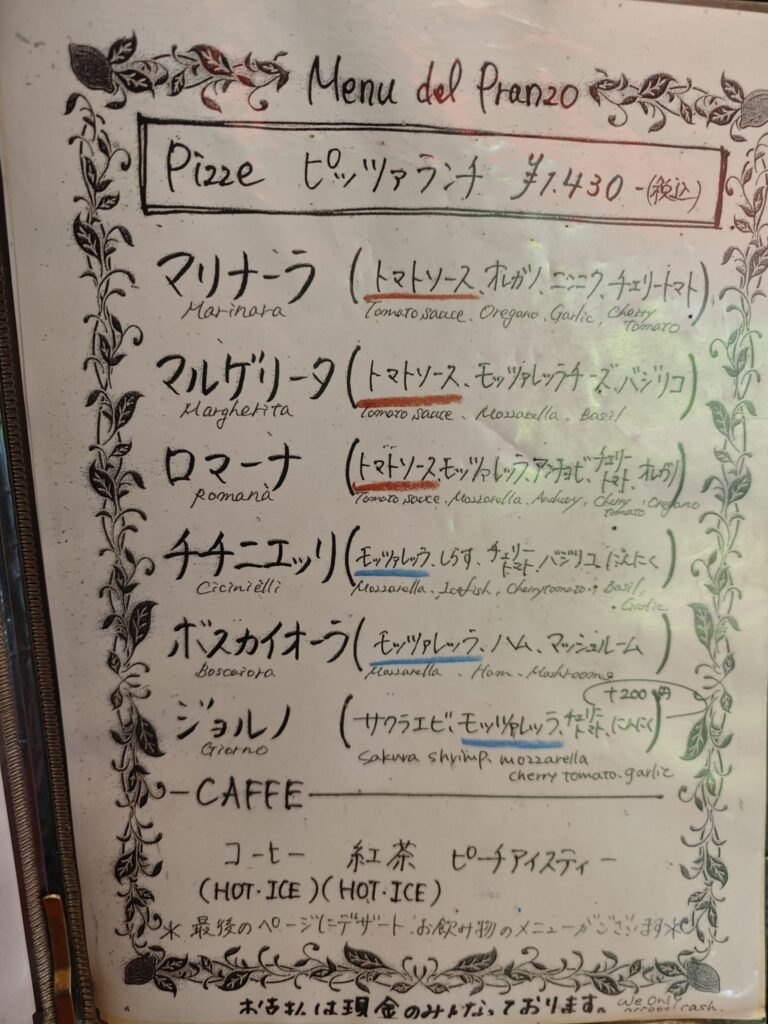 Menu del Pranzo
Pizze ピッツァランチ ¥1.430-(税込)
マリナーラ (トマトソース、オレガノ、ニンニク、チェリートマト)
Marinara Tomato sauce. Oregano. Garlic, Cherry Tomato
マルゲリータ (トマトソース、モッツァレッラチーズ、バジリコ)
Margherita Tomato sauce. Mozzarella. Basil
ロマーナ (トマトソース、モッツァレッラ、アンチョビ、チェリートマト、オレガノ)
Romana Tomato sauce, Mozzarella, Cherry Tomato. Oregano
チチニエッリ (モッツァレッラ、しらす、チェリートマト、バジリコ、にんにく)
Cicinielli Mozzarella. Icefish, Cherrytomato. Basil, Garlic
ボスカイオーラ (モッツァレッラ、ハム、マッシュルーム)
Boscaiora Mozzarella. Ham. Mashrooms
+200円
ジョルノ (サクラエビ、モッツァレッラ、チェリートマト、にんにく)
Giorno sakura shrimp. mozzarella
cherry tomato. garlic
CAFFE
コーヒー 紅茶 ピーチアイスティー
(HOT・ICE) (HOT・ICE)
*最後のページにデザート、お飲み物のメニューがございます*
お支払は現金のみとなっております。 we only accept cash.